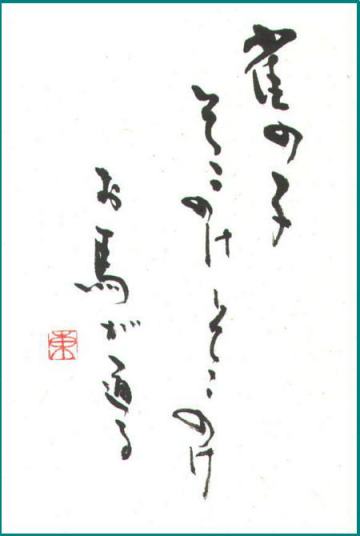 雀の子
そこのけそこのけ
お馬が通る
東